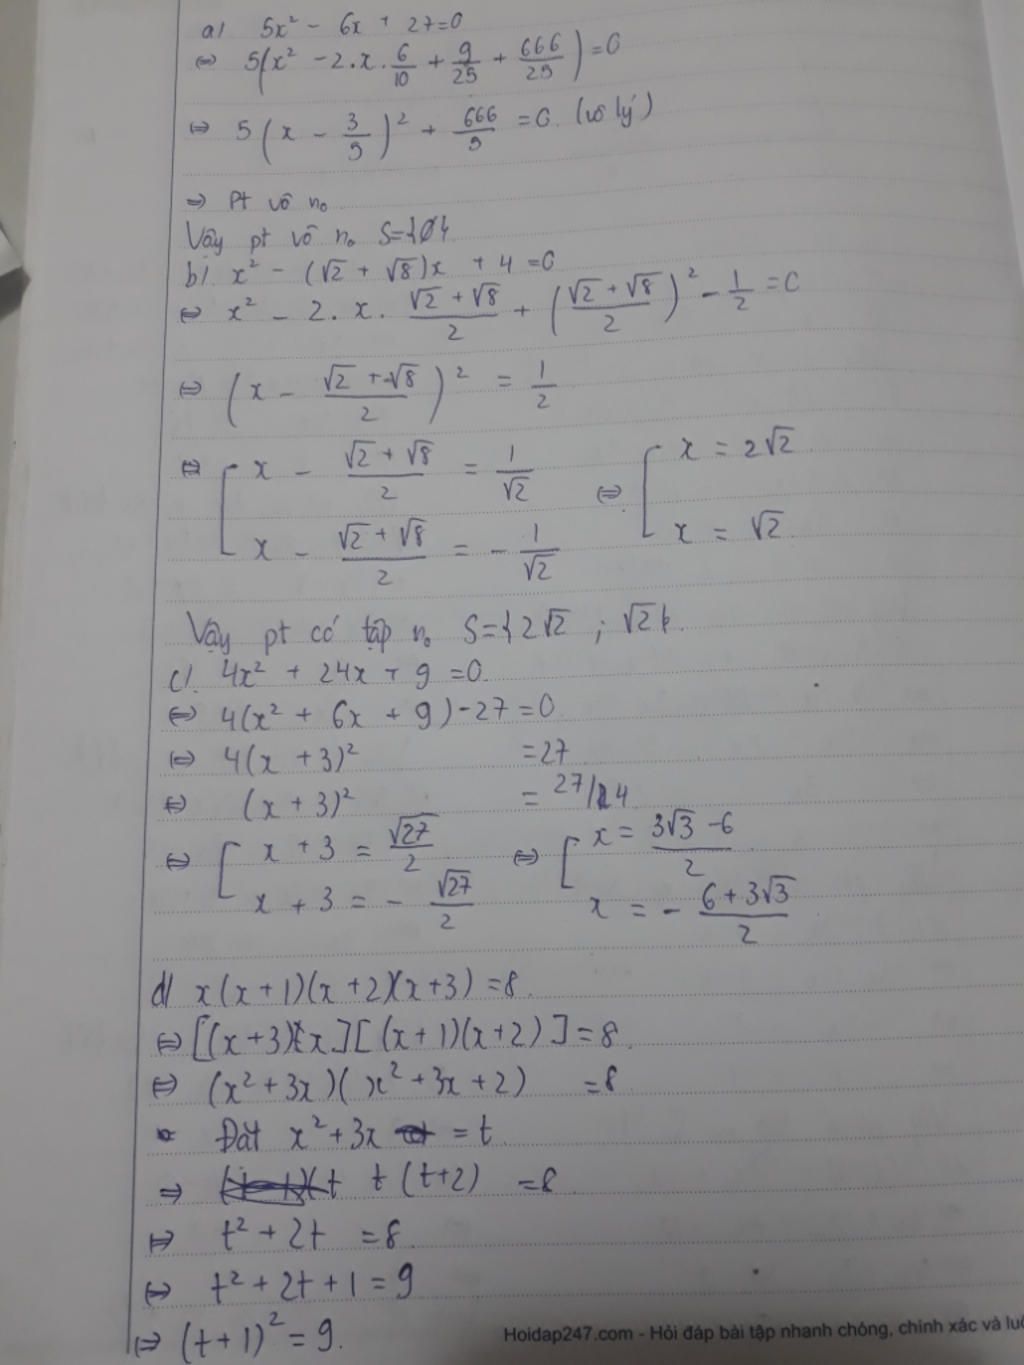 a) 5x² - 6x + 27 = 0
⇔ 5(x² - 2.x.6/10 + 9/25 + 666/25) = 0
⇔ 5(x - 3/5)² + 666/5 = 0. (vô lý)
⇒ Pt vô no
Vậy pt vô no S={∅}
b) x² - (√2 + √8)x + 4 = 0
⇔ x² - 2.x.(√2 + √8)/2 + ((√2 + √8)/2)² - 1/2 = 0
⇔ (x - (√2 + √8)/2)² = 1/2
⇔ [ x - (√2 + √8)/2 = 1/√2 ⇔ [ x = 2√2
x - (√2 + √8)/2 = - 1/√2 x = √2
Vậy pt có tập no S={2√2 ; √2}.
c) 4x² + 24x + 9 = 0
⇔ 4(x² + 6x + 9) - 27 = 0
⇔ 4(x + 3)² = 27
⇔ (x + 3)² = 27/4
⇔ [ x + 3 = √27/2 ⇔ [ x = (3√3 - 6)/2
x + 3 = - √27/2 x = - (6 + 3√3)/2
d) x(x + 1)(x + 2)(x + 3) = 8.
⇔ [(x + 3)x][(x + 1)(x + 2)] = 8.
⇔ (x² + 3x)(x² + 3x + 2) = 8
Đặt x² + 3x = t
⇒ t(t + 2) = 8
⇔ t² + 2t = 8
⇔ t² + 2t + 1 = 9
⇔ (t + 1)² = 9.
Hoidap247.com - Hỏi đáp bài tập nhanh chóng, chính xác và lu